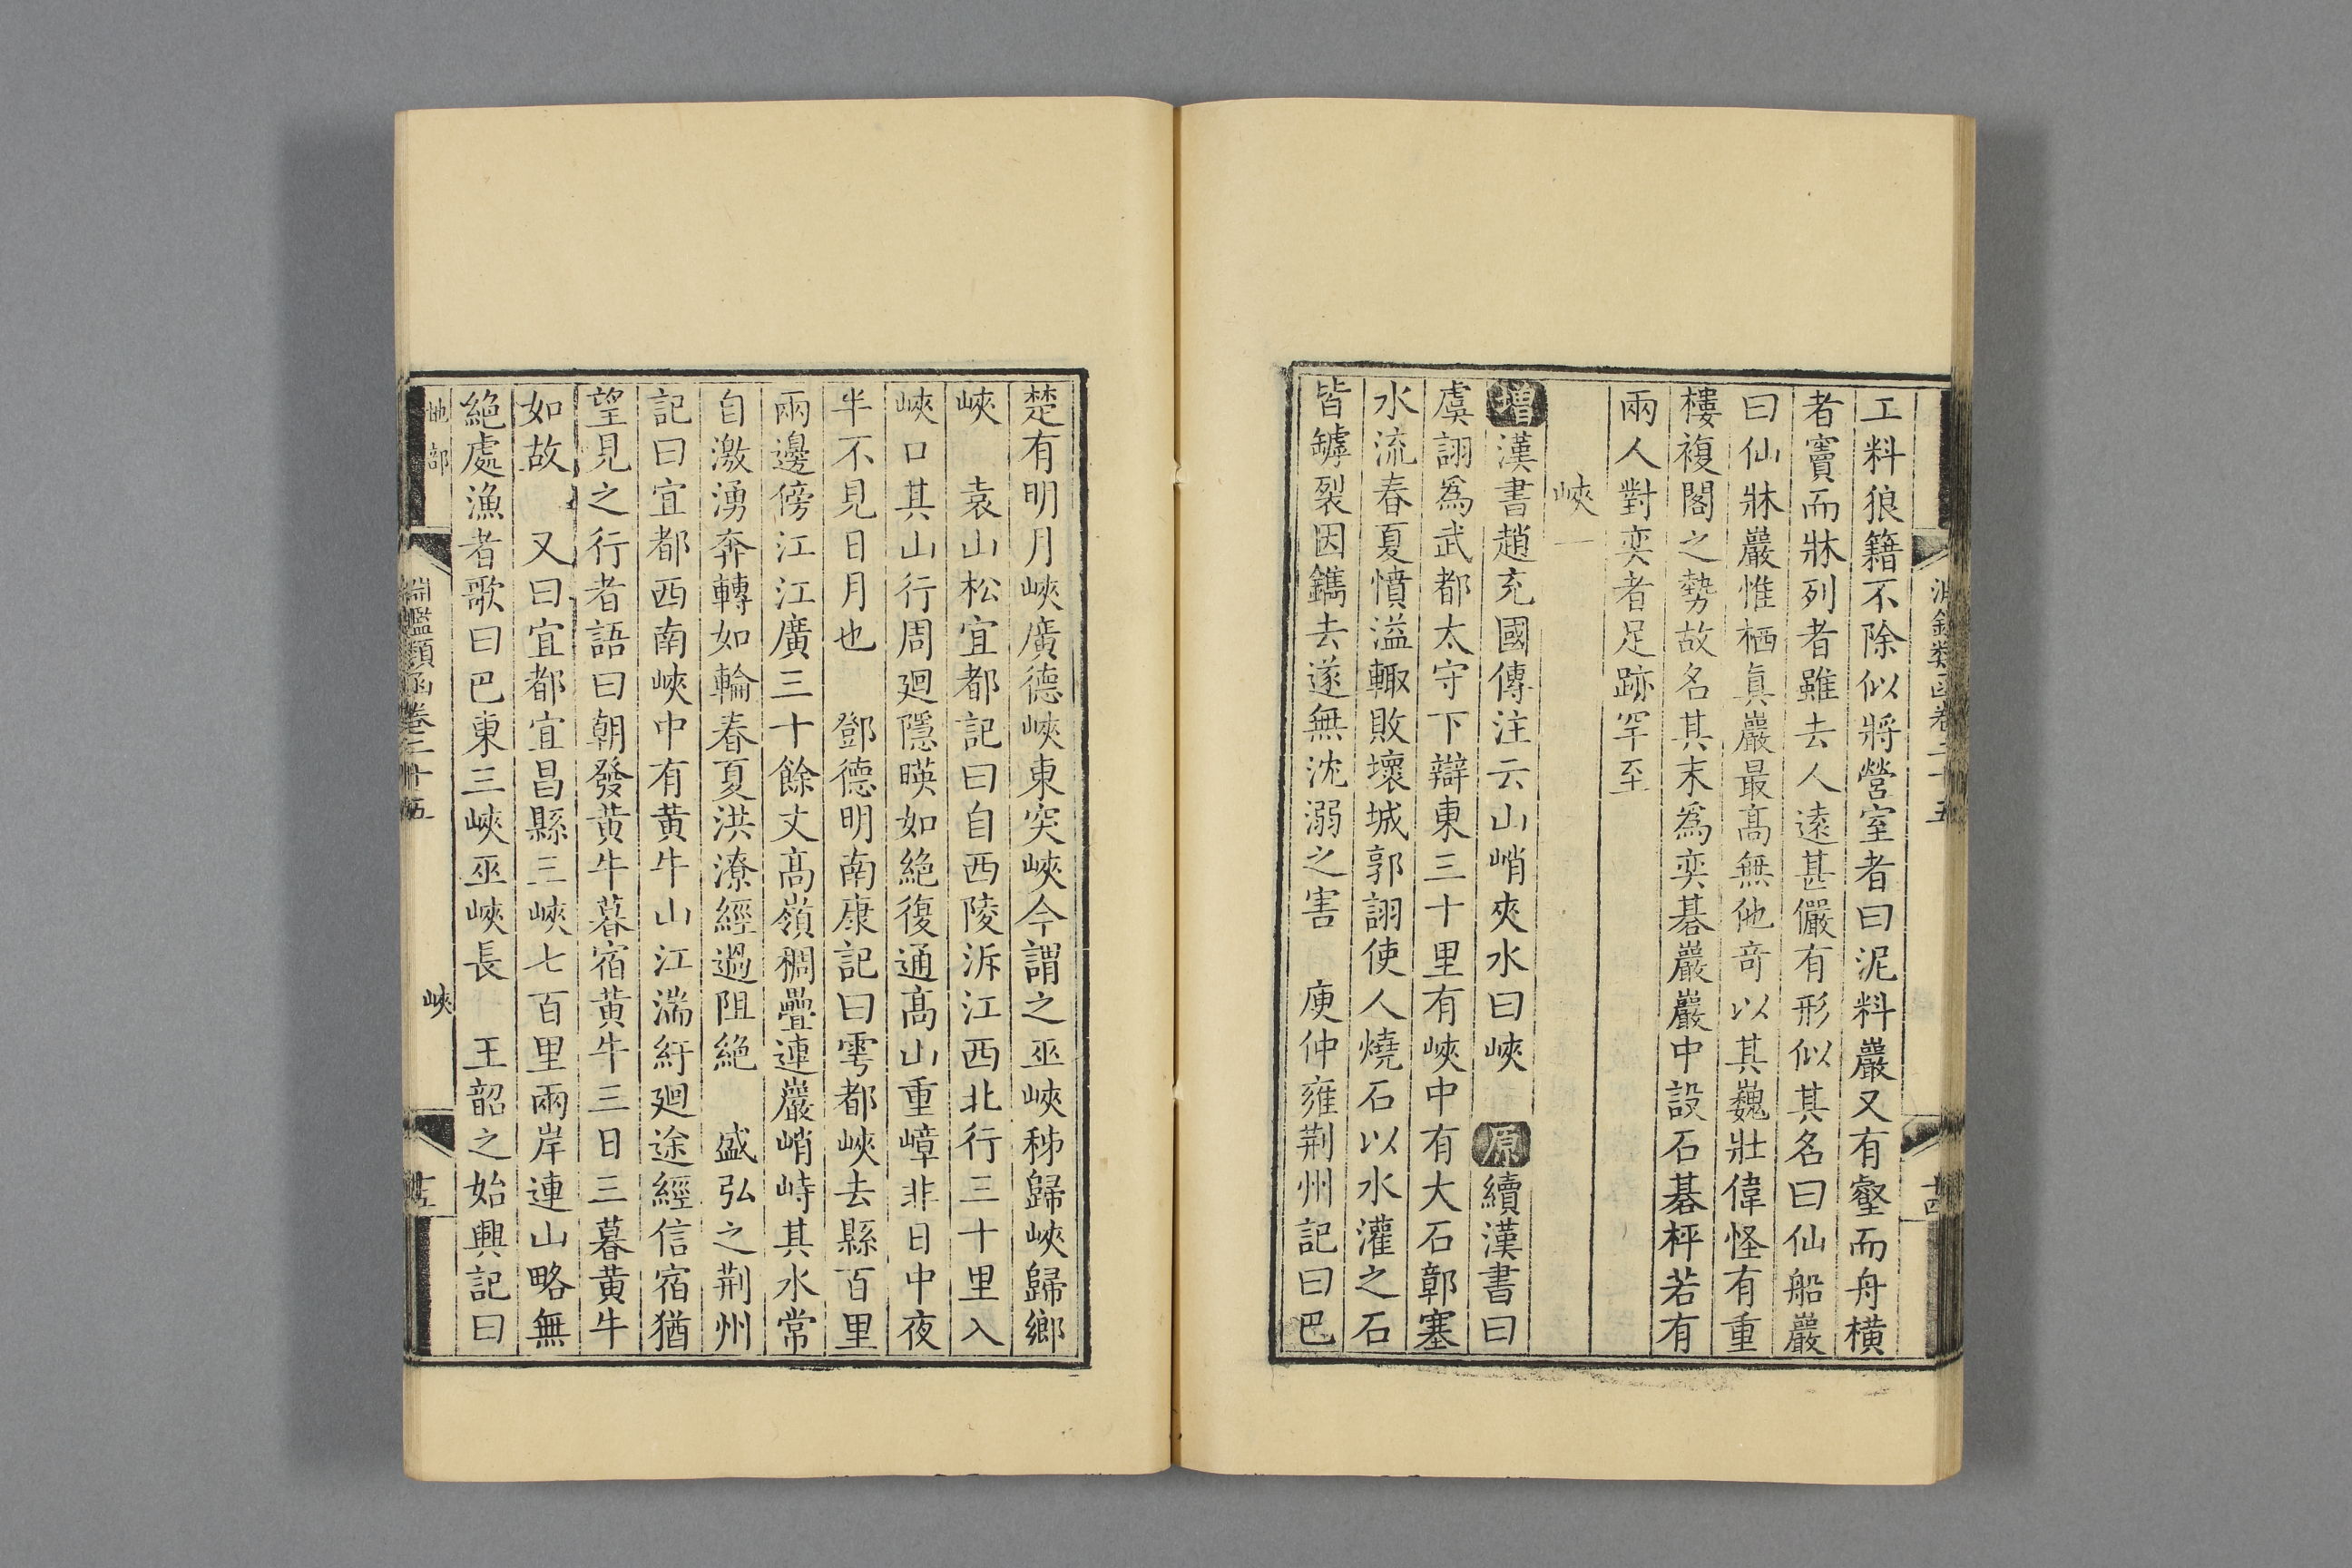 工料狼籍不除似將營室者曰泥料巖又有壑而舟橫
者竇而牀列者雖去人遠甚儼有形似其名曰仙船巖
曰仙牀巖惟栖真巖最高無他竒以其巍壯偉怪有重
樓複閣之勢故名其末爲奕碁巖巖中設石碁枰若有
兩人對奕者足跡罕至
峽一
增漢書趙充國傳注云山峭夾水曰峽 原續漢書曰
虞詡爲武都太守下辯東三十里有峽中有大石鄣塞
水流春夏憤溢輙敗壞城郭詡使人燒石以水灌之石
皆罅裂因鐫去遂無沈溺之害 庾仲雍荆州記曰巴
楚有明月峽廣德峽東突峽今謂之巫峽秭歸峽歸鄉
峽 袁山松宜都記曰自西陵泝江西北行三十里入
峽口其山行周廻隱暎如絶復通高山重嶂非日中夜
半不見日月也 鄧德明南康記曰雩都峽去縣百里
兩邊傍江江廣三十餘丈高嶺稠疊連巖峭峙其水常
自激湧奔轉如輪春夏洪潦經過阻絶 盛弘之荆州
記曰宜都西南峽中有黃牛山江湍紆廻途經信宿猶
望見之行者語曰朝發黃牛暮宿黃牛三日三暮黃牛
如故 又曰宜都宜昌縣三峽七百里兩岸連山略無
絶處漁者歌曰巴東三峽巫峽長 王韶之始興記曰
地部 淵鑑類函卷二十五 峽